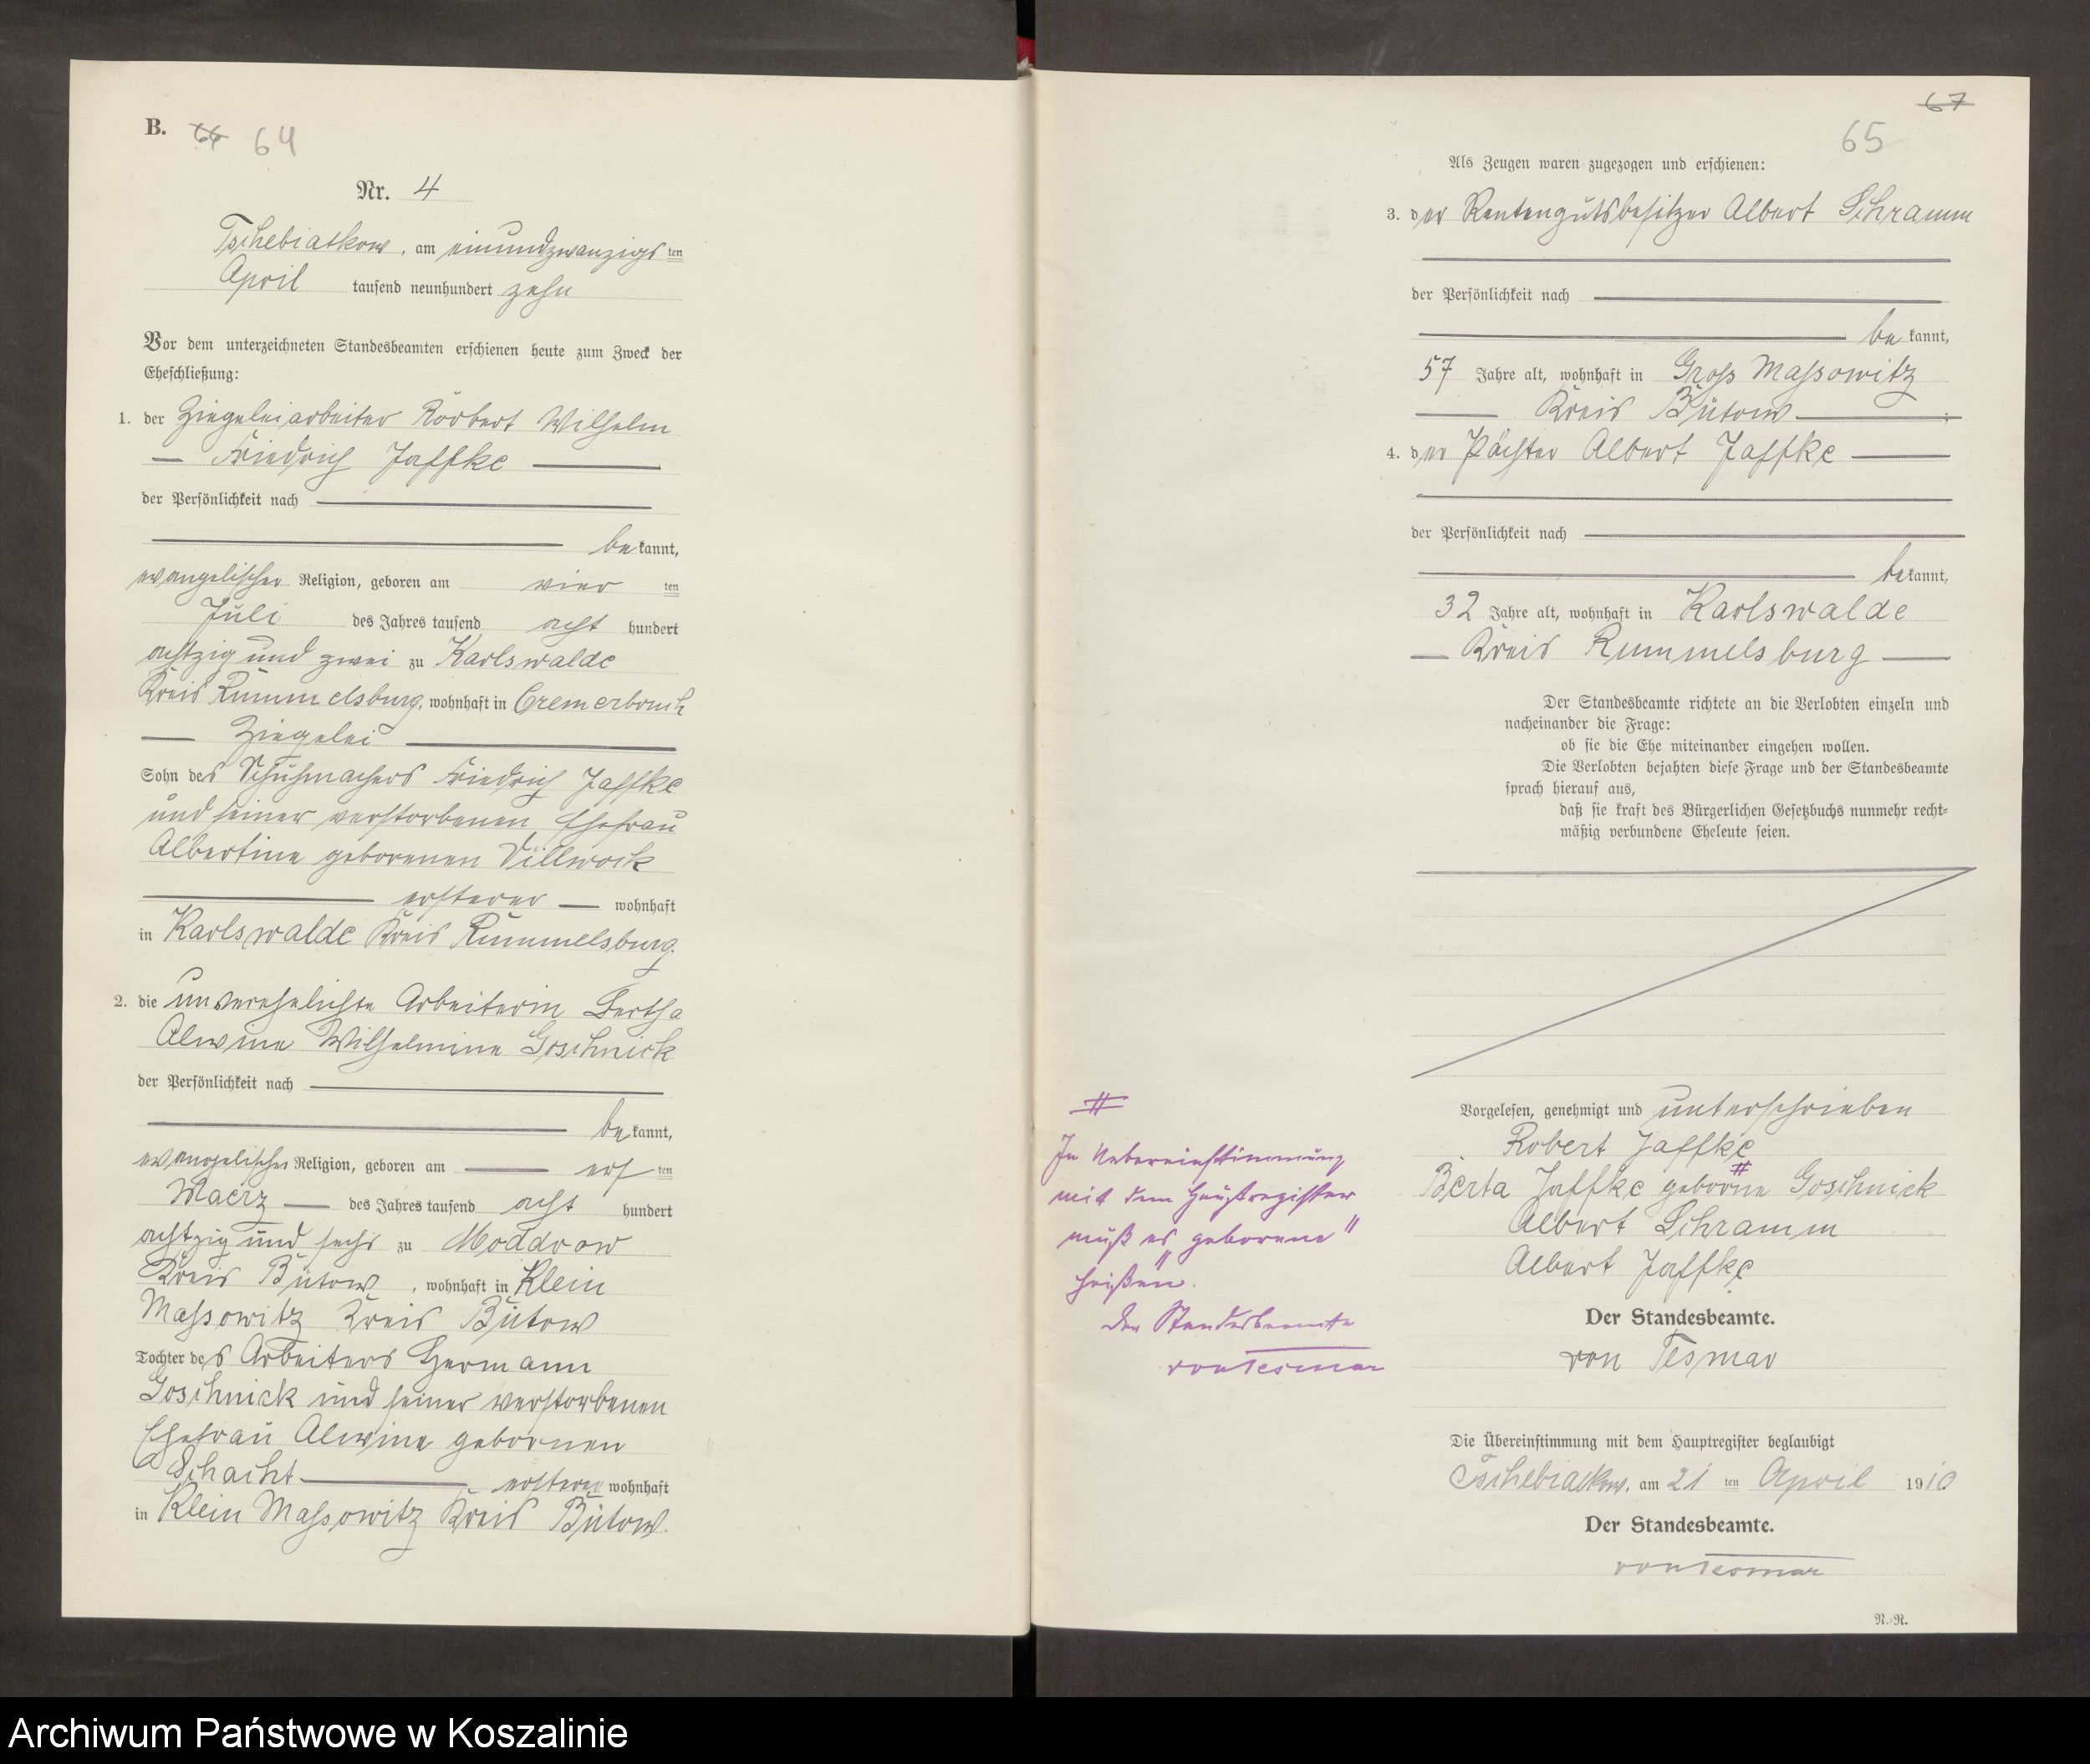 B. 66 64
Nr. 4
Tschebiatkow, am einundzwanzigs ten
April tausend neunhundert zehn
Vor dem unterzeichneten Standesbeamten erschienen heute zum Zweck der
Eheschließung:
1. der Ziegeleiarbeiter Robert Wilhelm
Friedrich Jaffke
der Persönlichkeit nach
be kannt,
evangelischer Religion, geboren am vier ten
Juli des Jahres tausend acht hundert
achtzig und zwei zu Karlswalde
Kreis Rummelsburg, wohnhaft in Cremerbruch
Ziegelei
Sohn des Schuhmachers Friedrich Jaffke
und seiner verstorbenen Ehefrau
Albertine geborenen Villwock
ersterer wohnhaft
in Karlswalde Kreis Rummelsburg.
2. die unverehelichte Arbeiterin Bertha
Alwine Wilhelmine Goschnick
der Persönlichkeit nach
be kannt,
evangelischer Religion, geboren am ers ten
Maerz des Jahres tausend acht hundert
achtzig und sechs zu Moddrow
Kreis Bütow, wohnhaft in Klein
Massowitz Kreis Bütow
Tochter des Arbeiters Hermann
Goschnick und seiner verstorbenen
Ehefrau Alwine gebornen
Schacht ersterer wohnhaft
in Klein Massowitz Kreis Bütow.
67
65
Als Zeugen waren zugezogen und erschienen:
3. der Rentengutsbesitzer Albert Schramm
der Persönlichkeit nach
be kannt,
57 Jahre alt, wohnhaft in Gross Massowitz
Kreis Bütow ;
4. der Pächter Albert Jaffke
der Persönlichkeit nach
bekannt,
32 Jahre alt, wohnhaft in Karlswalde
Kreis Rummelsburg
Der Standesbeamte richtete an die Verlobten einzeln und
nacheinander die Frage:
ob sie die Ehe miteinander eingehen wollen.
Die Verlobten bejahten diese Frage und der Standesbeamte
sprach hierauf aus,
daß sie kraft des Bürgerlichen Gesetzbuchs nunmehr recht-
mäßig verbundene Eheleute seien.
Vorgelesen, genehmigt und unterschrieben
Robert Jaffke
Berta Jaffke geborne # Goschnick
Albert Schramm
Albert Jaffke
Der Standesbeamte.
von Tesmar
#
In Uebereinstimmung
mit dem Hauptregister
muß es „geborene"
heißen.
Der Standesbeamte
von Tesmar
Die Übereinstimmung mit dem Hauptregister beglaubigt
Tschebiatkow, am 21 ten April 1910
Der Standesbeamte.
von Tesmar
N. R.
Archiwum Państwowe w Koszalinie